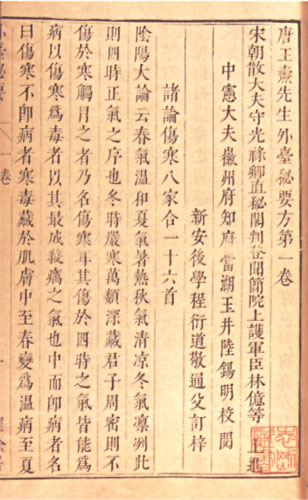 唐王燾先生外臺秘要方第一卷
宋朝散大夫守光祿卿直秘閣判登聞簡院上護軍臣林億等 上進
中憲大夫徽州府知府當湖玉井陸錫明校閱
新安後學程衍道敬通父訂梓
諸論傷寒八家合一十六首
陰陽大論云春氣溫和夏氣暑熱秋氣清凉冬氣凛冽此
則四時正氣之序也冬時嚴寒萬類深藏君子周密則不
傷於寒觸冒之者乃名傷寒耳其傷於四時之氣皆能爲
病以傷寒爲毒者以其最成殺癘之氣也中而卽病者名
曰傷寒不卽病者寒毒藏於肌膚中至春變爲溫病至夏
卷 一